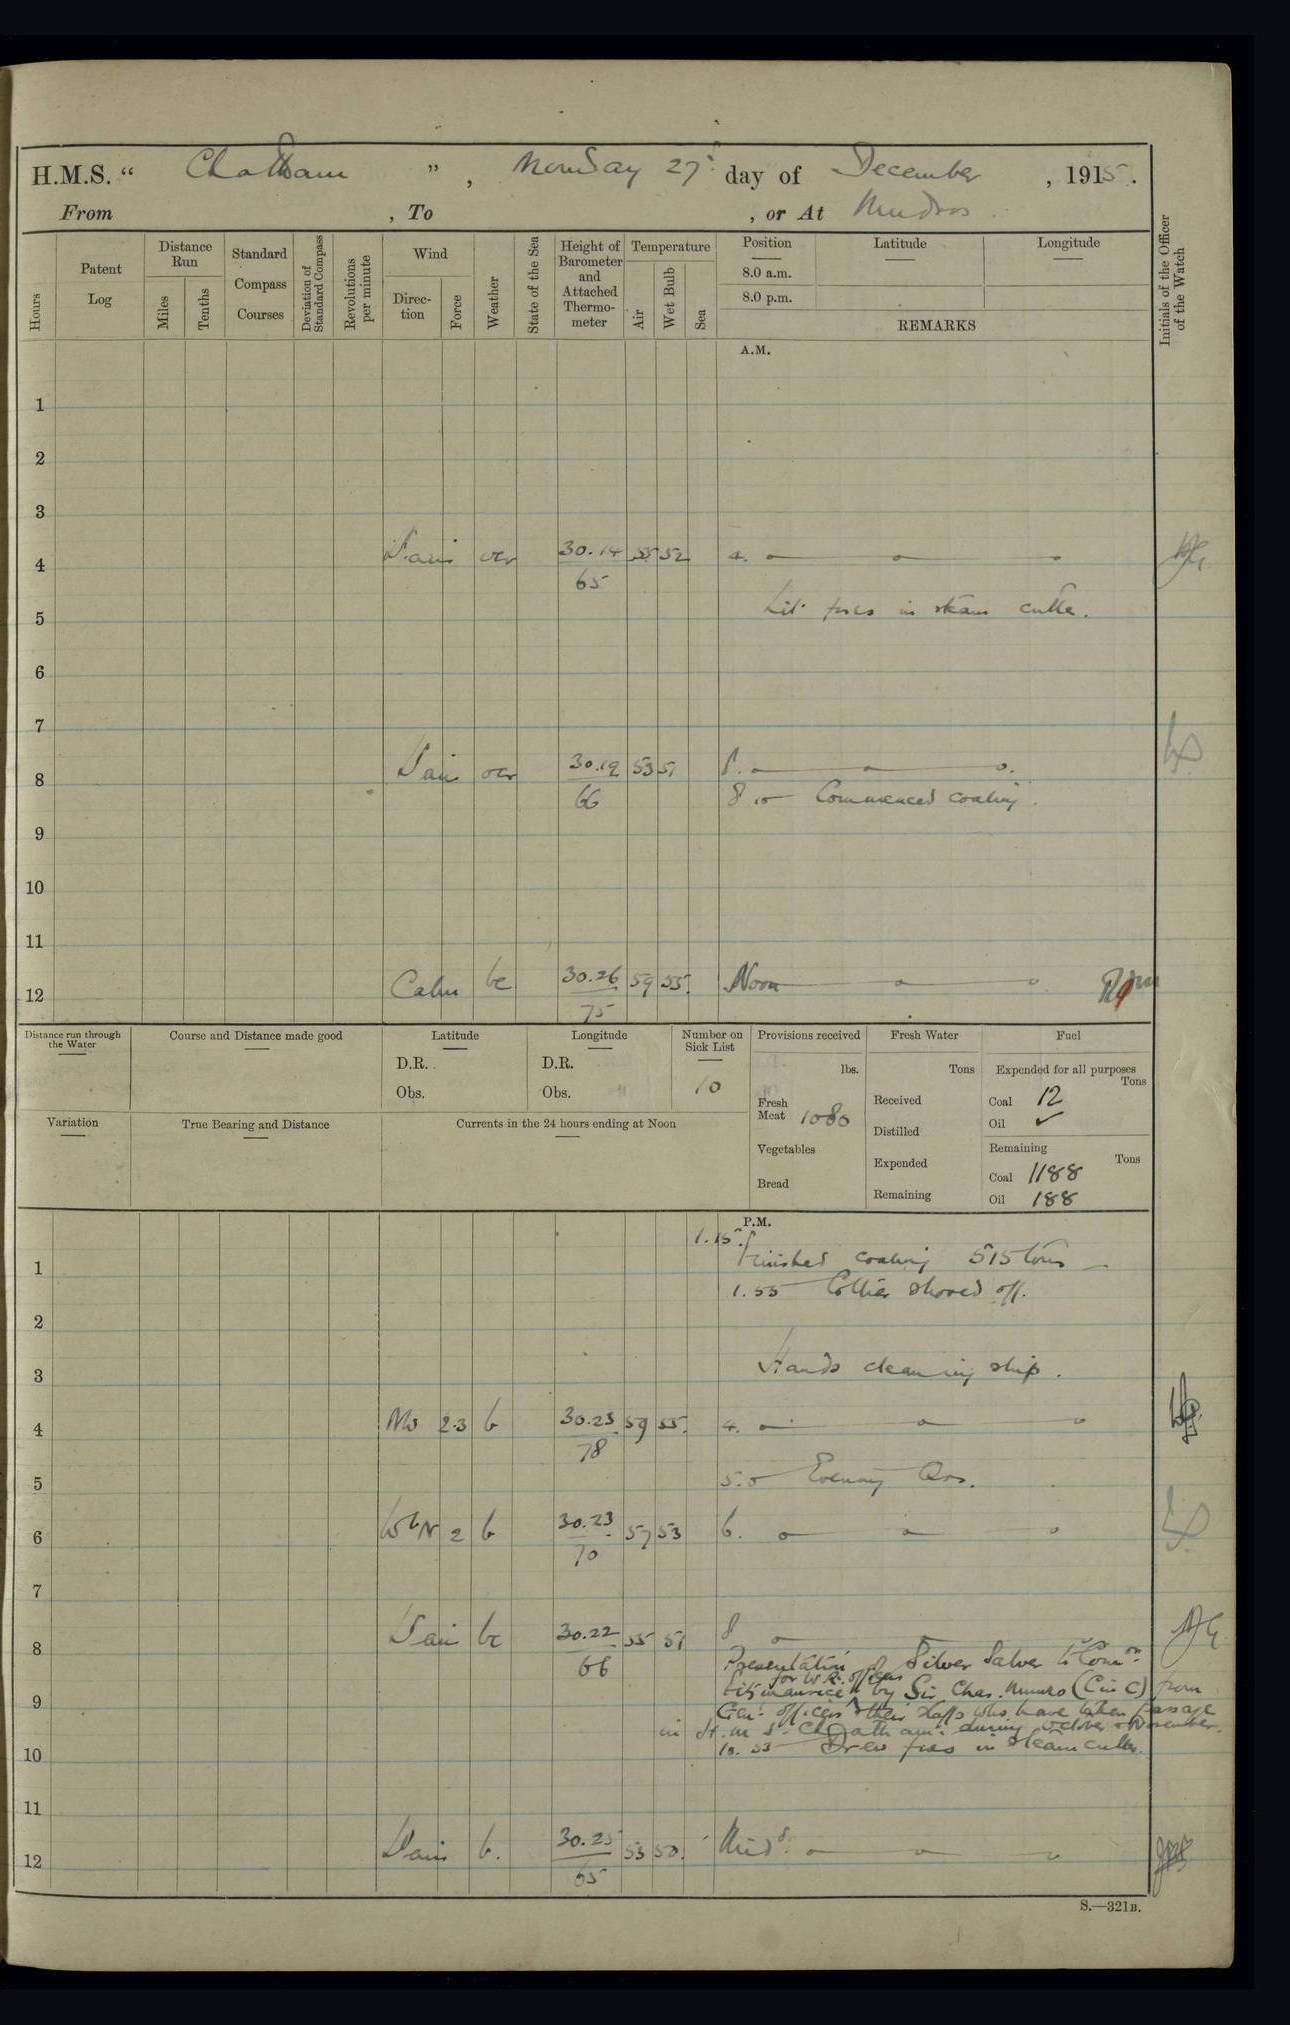 H.M.S. “ Chatham ” , Monday 27th day of December , 1915.
From , To , or At Mudros.
Hours
Patent Log
Distance Run
Miles
Tenths
Standard Compass Courses
Deviation of Standard Compass
Revolutions per minute
Wind
Direction
Force
Weather
State of the Sea
Height of Barometer and Attached Thermometer
Temperature
Air
Wet Bulb
Sea
Position Latitude Longitude
8.0 a.m.
8.0 p.m.
REMARKS
Initials of the Officer of the Watch
A.M.
1
2
3
4 30.14 55 52 4.
65
Lit fires in steam cutter.
5
6
7
8 30.19 53 51 8.
66
8.10 Commenced coaling.
9
10
11
12 Calm bc 30.26 59 55. Noon
75
Distance run through the Water
Course and Distance made good
Latitude
D.R.
Obs.
Longitude
D.R.
Obs.
Number on Sick List
10
Provisions received
lbs.
Fresh Meat 1080
Vegetables
Bread
Fresh Water
Tons
Received
Distilled
Expended
Remaining
Fuel
Expended for all purposes
Tons
Coal 12
Oil ✓
Remaining
Tons
Coal 1188
Oil 188
Variation
True Bearing and Distance
Currents in the 24 hours ending at Noon
P.M.
1.15.
1 Finished coaling 515 tons
1.55 Collier shoved off.
2
3 Hands cleaning ship.
4 2.3 b 30.23 59 55. 4.
78
5 5.0 Evening Qrs.
6 WbN 2 b 30.23 57 53 6.
70
7
8 bc 30.22 55 51 8
66
Presentation of Silver Salver to Comr.
for W.R. officers
Fitzmaurice by Sir Chas. Munro (C in C) from
9 Genl. officers & their staffs who have taken passage
in H.M.S. Chatham. during October & November.
10 10.55 Drew fires in steam cutter.
11
12 b. 30.25 53 50. Midt.
65
S.—321B.